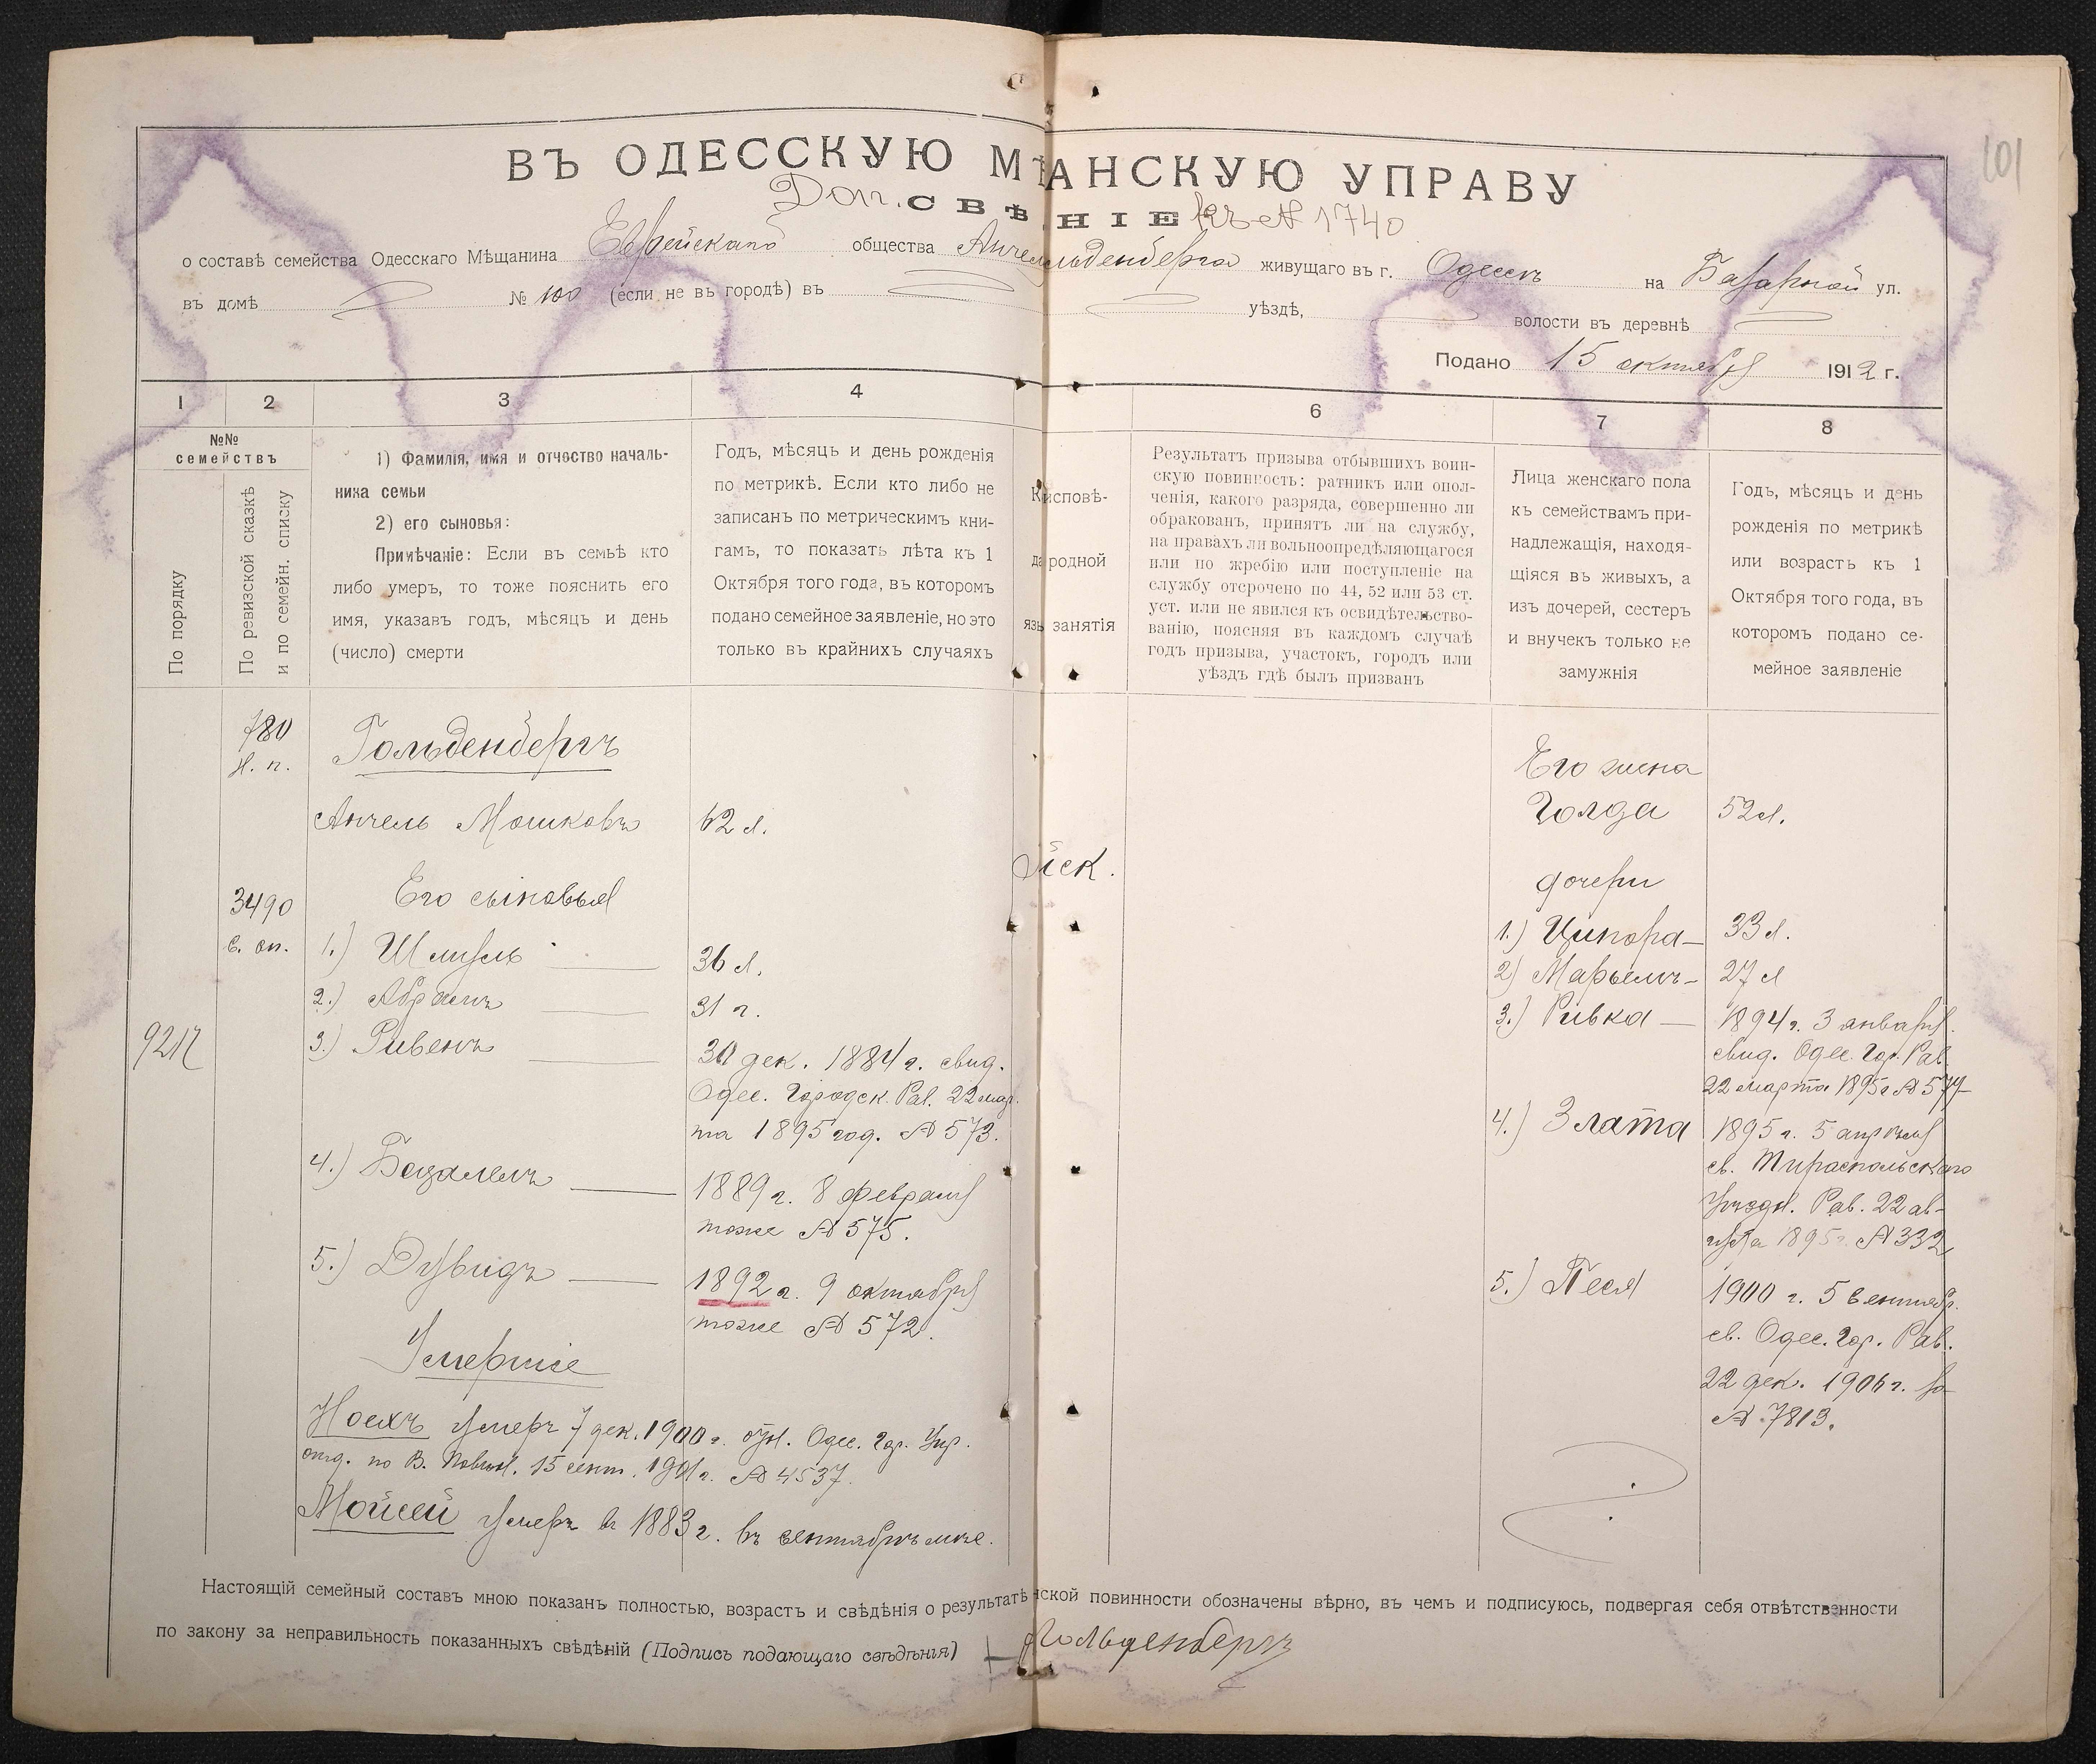 101
ВЪ ОДЕССКУЮ МѢ АНСКУЮ УПРАВУ
Доп. СВѢ НІЕ къ № 1740
о составѣ семейства Одесскаго Мѣщанина Еврейскаго общества Анчел льденберга живущаго въ г. Одессѣ на Базарной ул.
въ домѣ № 100 (если не въ городѣ) въ уѣздѣ, волости въ деревнѣ
Подано 15 октября 1912 г.
1 2 3 4 6 7 8
№№ семействъ
По порядку
По ревизской сказкѣ
и по семейн. списку
1) Фамилія, имя и отчество началь-
ника семьи
2) его сыновья:
Примѣчаніе: Если въ семьѣ кто
либо умеръ, то тоже пояснить его
имя, указавъ годъ, мѣсяцъ и день
(число) смерти
Годъ, мѣсяцъ и день рожденія
по метрикѣ. Если кто либо не
записанъ по метрическимъ кни-
гамъ, то показать лѣта къ 1
Октября того года, въ которомъ
подано семейное заявленіе, но это
только въ крайнихъ случаяхъ
исповѣ-
родной
занятія
Результатъ призыва отбывшихъ воин-
скую повинность: ратникъ или опол-
ченія, какого разряда, совершенно ли
обракованъ, принятъ ли на службу,
на правахъ ли вольноопредѣляющагося
или по жребію или поступленіе на
службу отсрочено по 44, 52 или 53 ст.
уст. или не явился къ освидѣтельство-
ванію, поясняя въ каждомъ случаѣ
годъ призыва, участокъ, городъ или
уѣздъ гдѣ былъ призванъ
Лица женскаго пола
къ семействамъ при-
надлежащія, находя-
щіяся въ живыхъ, а
изъ дочерей, сестеръ
и внучекъ только не
замужнія
Годъ, мѣсяцъ и день
рожденія по метрикѣ
или возрасть къ 1
Октября того года, въ
которомъ подано се-
мейное заявленіе
780
н. п.
Гольденбергъ
Анчель Мошковъ 62 л.
3490
с. сп.
Его сыновья
1.) Шмуль 36 л.
2.) Абрамъ 31 г.
921
3.) Рувенъ 30 дек. 1884 г. свид.
Одес. Городск. Рав. 22 мар-
та 1895 год. № 573.
4.) Бецалелъ 1889 г. 8 февраля
тоже № 575.
5.) Дувидъ 1892 г. 9 октября
тоже № 572.
Умершіе
Ноехъ умеръ 7 дек. 1900 г. Одес. Гор. Упр.
отд. по В. Повин. 15 сент. 1901 г. № 4537.
Мойсей умеръ въ 1883 г. въ сентябрѣ м-цѣ.
йск.
Его жена
Голда 52 л.
дочери
1.) Ципора 33 л.
2) Марьемъ 27 л
3.) Ривка 1894 г. 3 января
свид. Одес. Гор. Рав.
22 марта 1895 г № 574
4.) Злата 1895 г. 5 апрѣля
св. Тираспольскаго
Уѣздн. Рав. 22 ав-
густа 1895 г. № 332
5.) Песя 1900 г. 5 сентябр.
св. Одес. Гор. Рав.
22 дек. 1906 г. за
№ 7813.
Настоящій семейный составъ мною показанъ полностью, возрастъ и свѣдѣнія о результатѣ нской повинности обозначены вѣрно, въ чемъ и подписуюсь, подвергая себя отвѣтственности
по закону за неправильность показанныхъ свѣдѣній (Подпись подающаго свѣдѣнія) Гольденбергъ